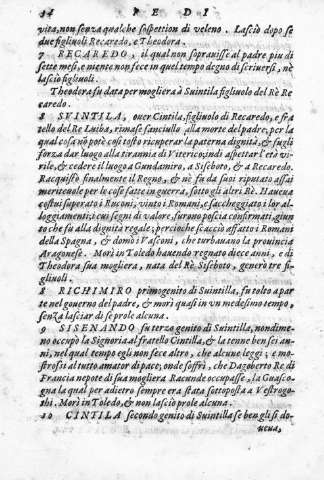 34 R E D I
vita, non senza qualche sospettion di veleno. Lasciò dopo se
due figliuoli Recaredo, e Theodora.
7 RECAREDO, il qual non sopravisse al padre piu di
sette mesi, e niente non fece in quel tempo degno di scriversi, nè
lasciò figliuoli.
Theodora fu data per mogliera à Suintila figliuolo del Rè Re
caredo.
8 SVINTILA, over Cintila, figliuolo di Recaredo, e fra
tello del Re Luiba, rimase fanciullo alla morte del padre, per la
qual cosa nõ potè così tosto ricuperar la paterna dignità, & fugli
forza dar luogo alla tirannia di Viterico; indi aspettar l'età vi-
rile, & cedere il luogo a Gundamiro, a Siseboto, & a Recaredo.
Racquistò finalmente il Regno, & nè fu da suoi riputato assai
meritevole per le cose fatte in guerra, sotto gli altri Rè. Haveua
costui superato i Ruconi, vinto i Romani, e saccheggiato i lor al-
loggiamenti; i cui segni di valore, furono poscia confirmati, giun
to che fu alla dignità regale; percioche scacciò affatto i Romani
della Spagna, & domò i Vasconi, che turbauano la provincia
Aragonese. Morì in Toledo hauendo regnato diece anni, e di
Theodora sua mogliera, nata del Rè Siseboto, generò tre fi-
gliuoli.
8 RICHIMIRO primogenito di Suintilla, fu tolto a par
te nel governo del padre, & morì quasi in vn medesimo tempo,
senza lasciar di se prole alcuna.
9 SISENANDO fu terzo genito di Suintilla, nondime-
no occupò la Signoria al fratello Cintilla, & la tenne ben sei an-
ni, nel qual tempo egli non fece altro, che alcune leggi; e mo-
strossi al tutto amator di pace; onde soffrì, che Dagoberto Re di
Francia nepote di sua mogliera Racunde occupasse, la Guasco-
gna la qual per adietro sempre era stata sottoposta a Vestrogo-
thi. Morì in Toledo, & non lasciò prole alcuna.
10 CINTILA secondo genito di Suintilla se ben gli si do-
ueua,